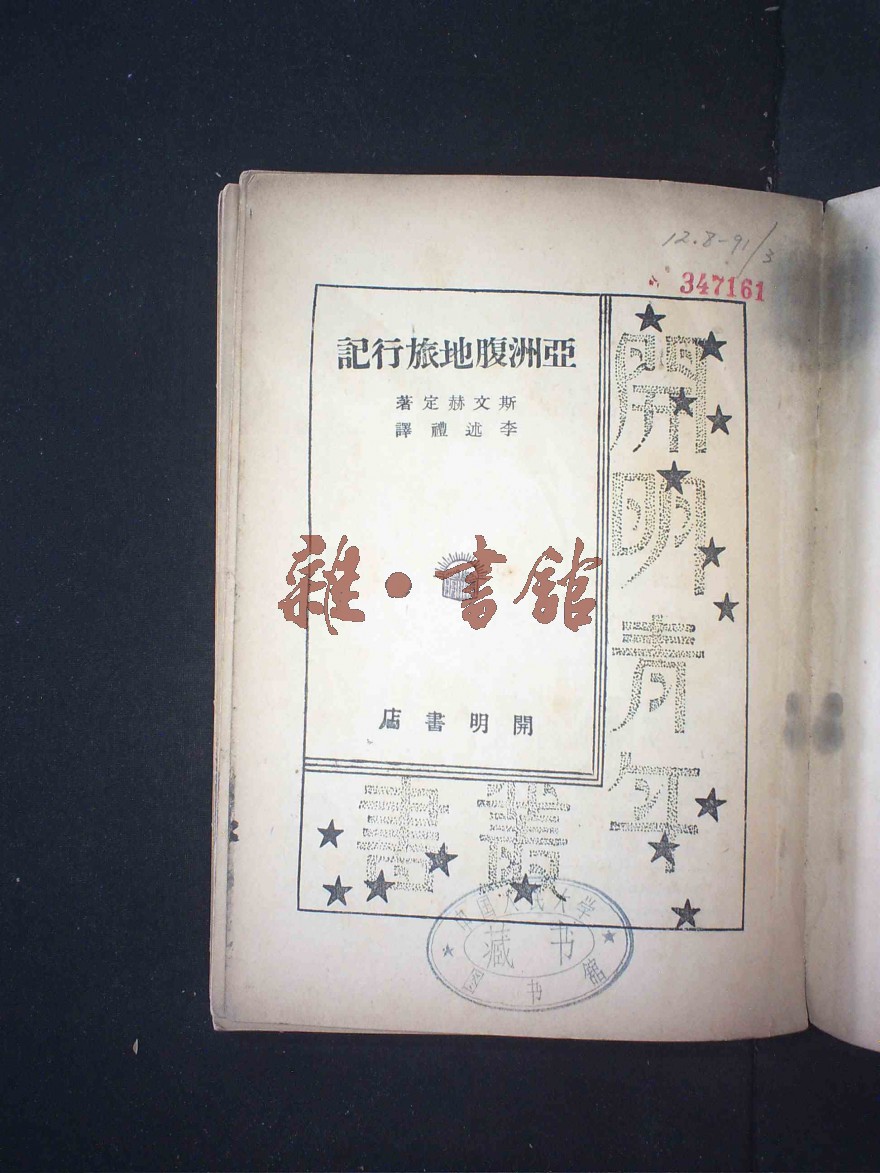 12.8-91/3
347161
亞洲腹地旅行記
斯文赫定著
李述禮譯
雜·書館
開明書店
開明青年
叢書
中国人民大学
藏书
图书馆